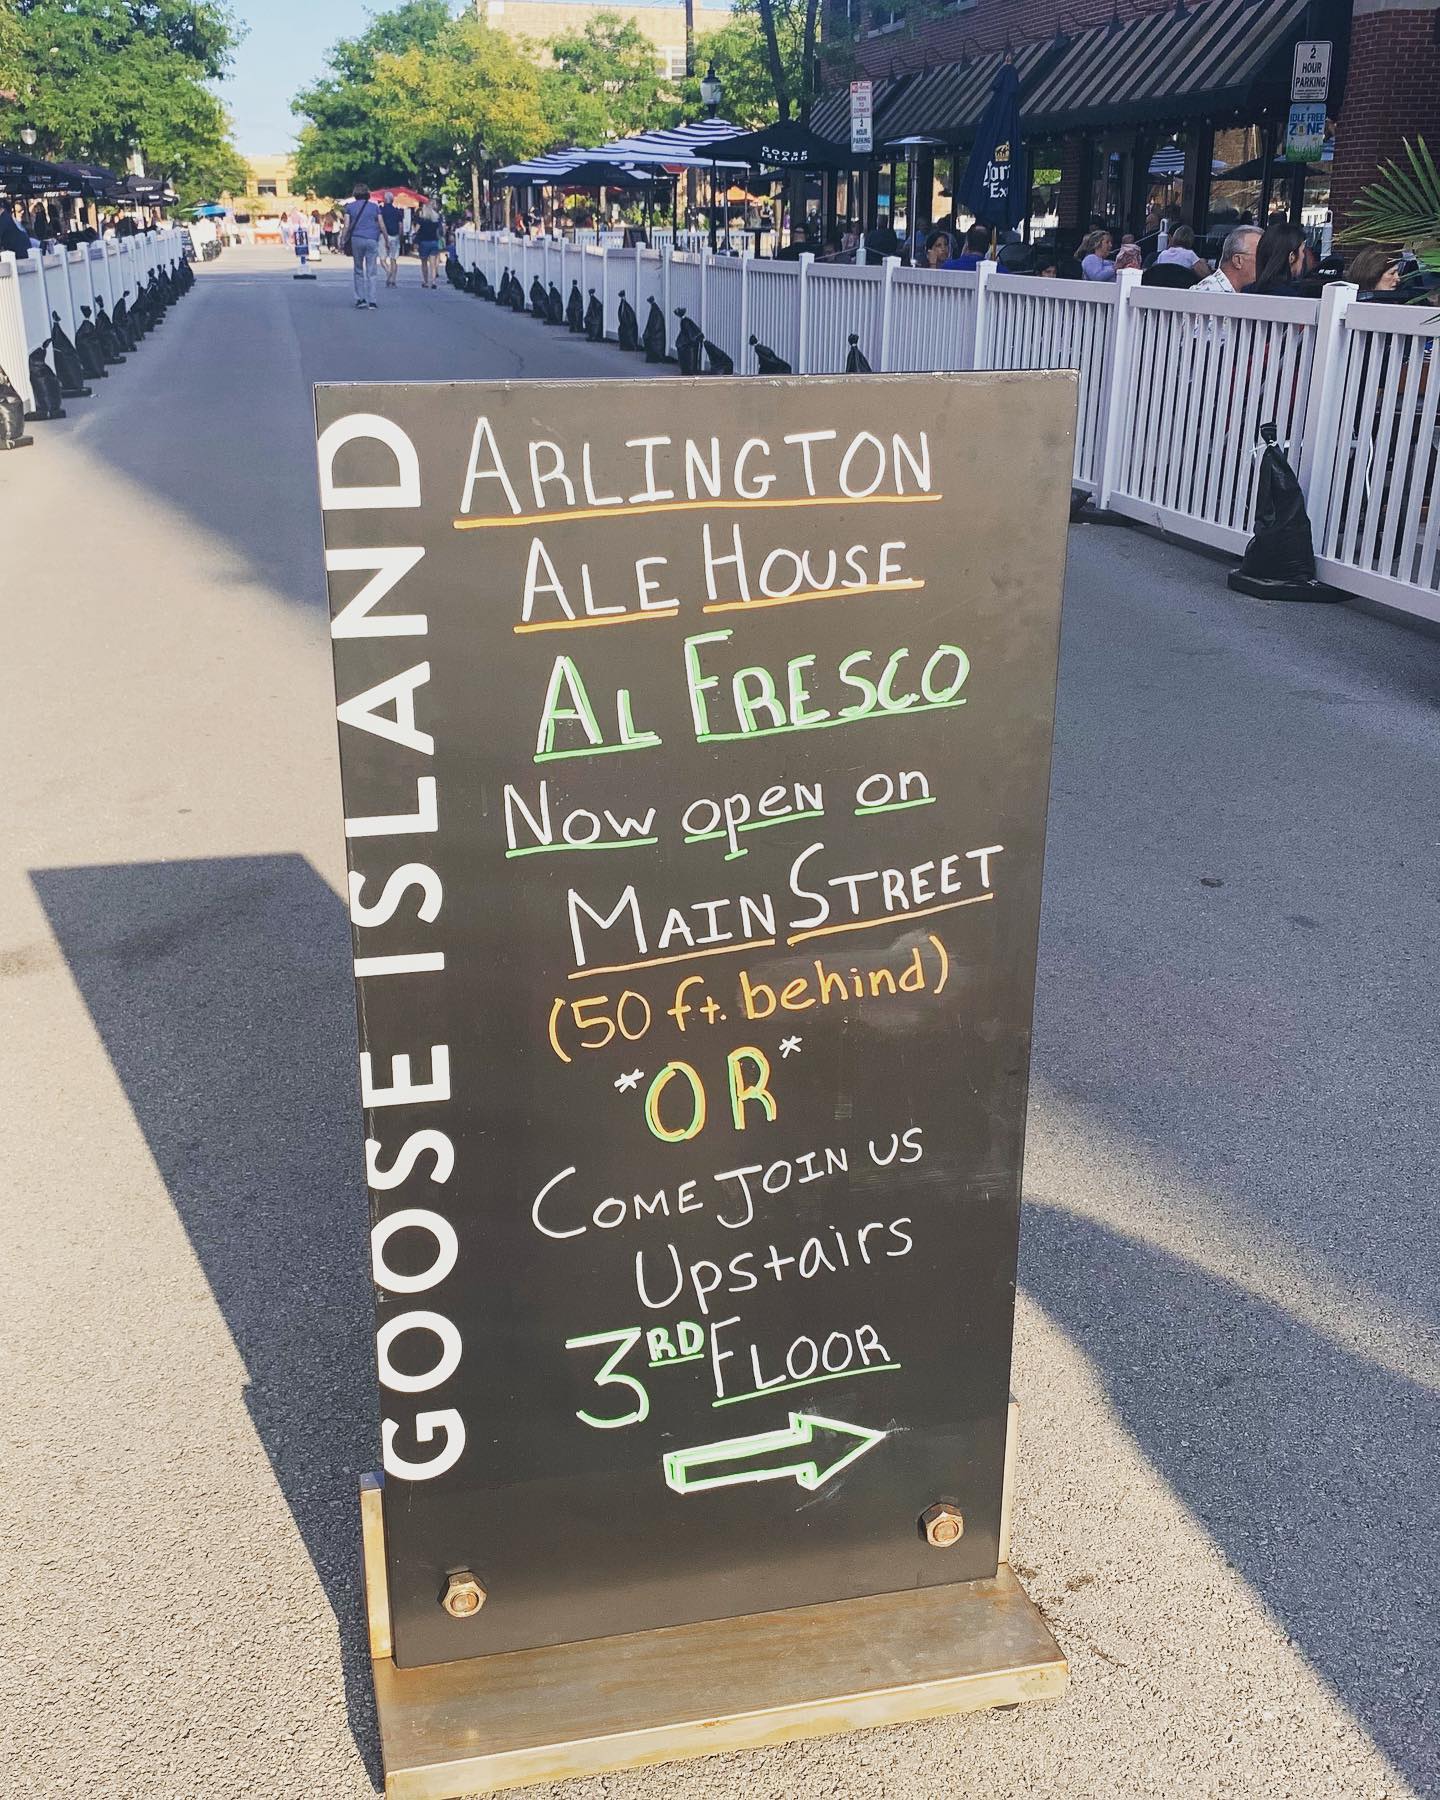 GOOSE ISLAND
ARLINGTON
ALE HOUSE
AL FRESCO
Now open on
MAIN STREET
(50 ft. behind)
*OR*
COME JOIN US
Upstairs
3RD FLOOR
GOOSE
ISLAND
2
HOUR
PARKING
2
HOUR
PARKING
IDLE FREE
ZONE